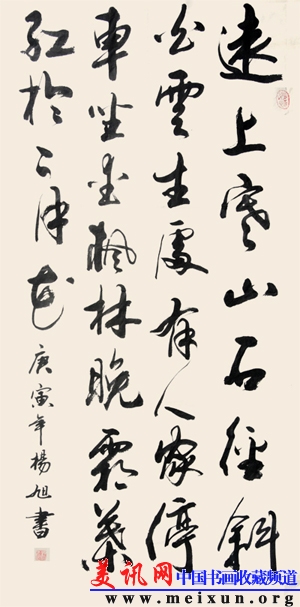 遠上寒山石徑斜
白雲生處有人家停
車坐愛楓林晚霜葉
紅於二月花
庚寅年楊旭書
美讯网 中国书画收藏频道
www.meixun.org